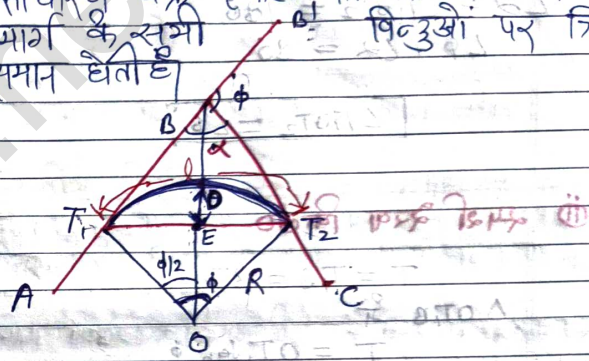 मार्ग के सभी बिन्दुओं पर त्रि
समान होती है।
B'
ϕ
B
α
l
D
T₁
E
T₂
ϕ/2
ϕ
R
A
C
O